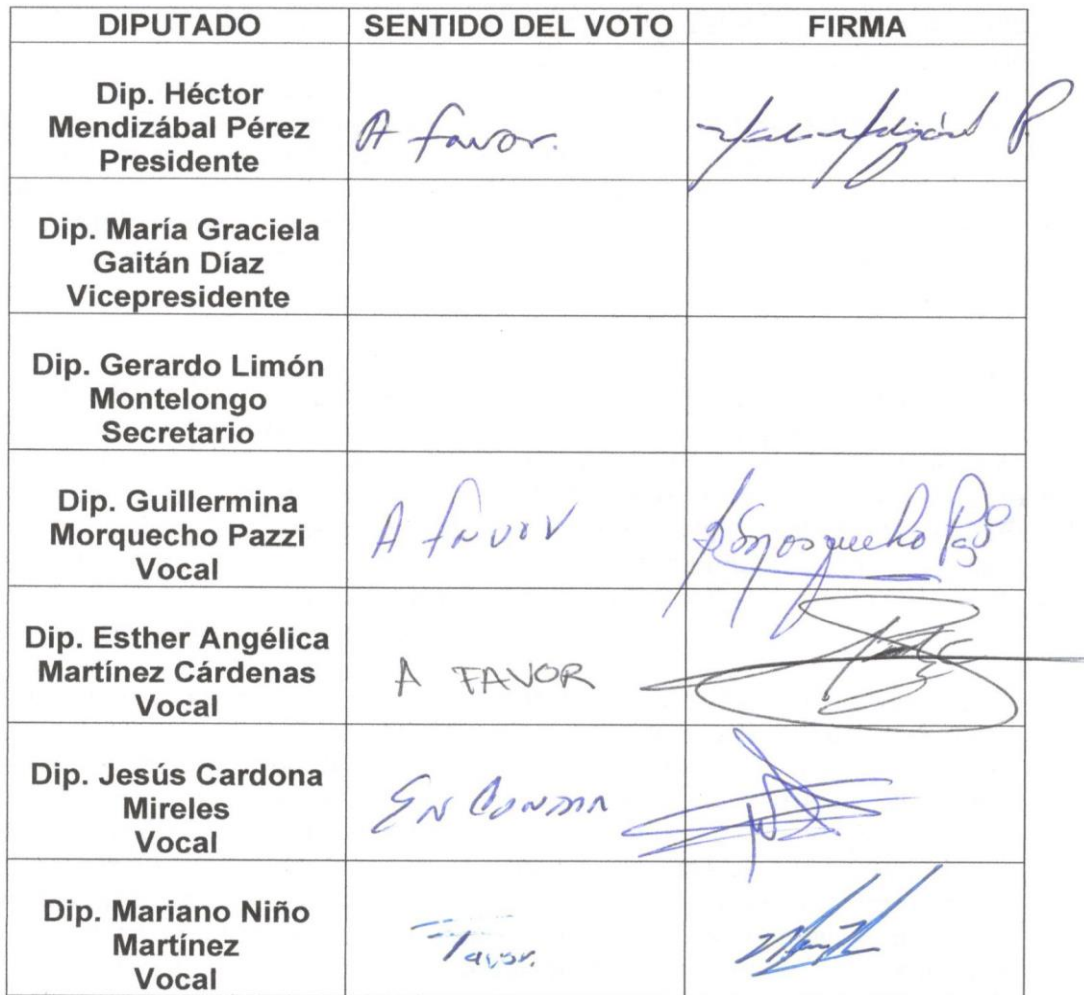 DIPUTADO SENTIDO DEL VOTO FIRMA
Dip. Héctor
Mendizábal Pérez
Presidente
A favor.
Dip. María Graciela
Gaitán Díaz
Vicepresidente
Dip. Gerardo Limón
Montelongo
Secretario
Dip. Guillermina
Morquecho Pazzi
Vocal
A favor
Dip. Esther Angélica
Martínez Cárdenas
Vocal
A FAVOR
Dip. Jesús Cardona
Mireles
Vocal
EN
Dip. Mariano Niño
Martínez
Vocal
Favor.